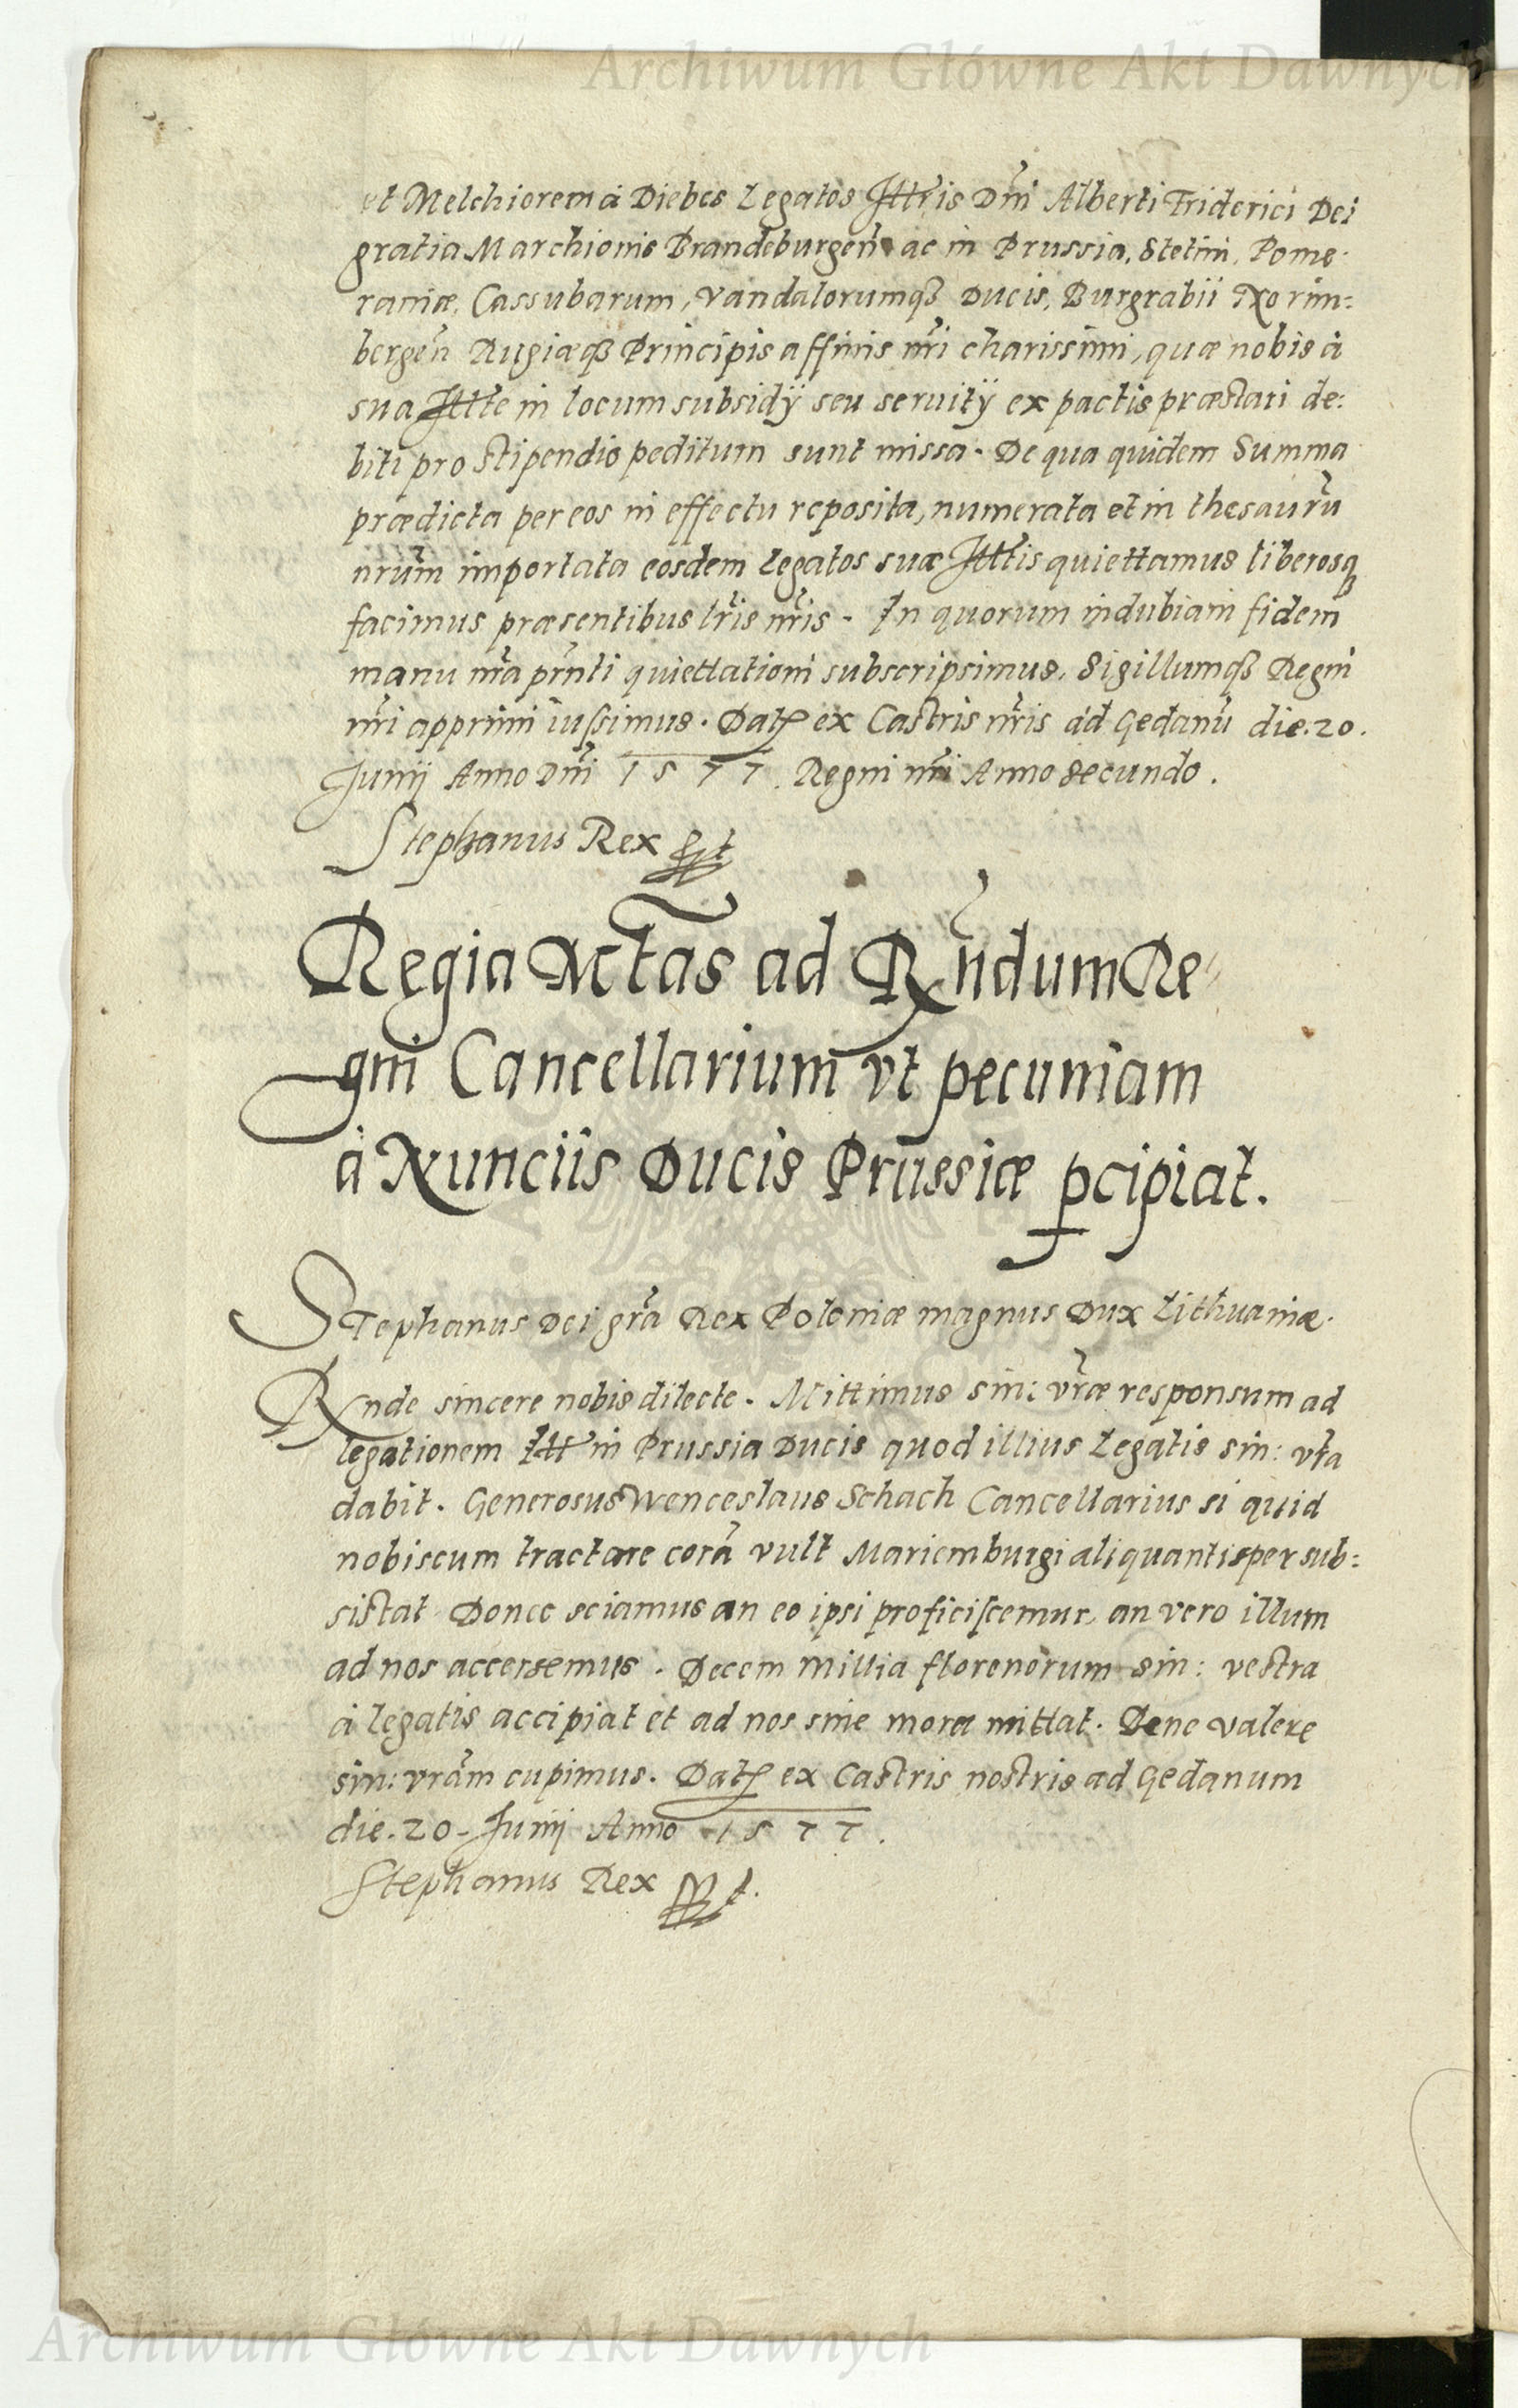 Archiwum Główne Akt Dawnych
et Melchiorem à Diebes Legatos Illris Dni Alberti Friderici Dei
gratia Marchionis Brandeburgen ac in Prussia, Stetini, Pome-
raniæ, Cassubarum, Vandalorumq3 Ducis, Burgrabii Norim:
bergen Rugiæq3 Principis affinis nri charissimi, quæ nobis à
sua Illtte in locum subsidÿ seu seruitÿ ex pactis præstari de:
biti pro stipendio peditum sunt missa. De qua quidem Summa
prædicta per eos in effectu reposita, numerata et in thesaurū
nrum importata eosdem Legatos suæ Illttis quiettamus liberosq
facimus præsentibus lris nris. In quorum indubiam fidem
manu nra prnti quiettationi subscripsimus, Sigillumq3 Regni
nri apprimi iussimus. Dat ex Castris nris ad Gedanū die. 20.
Junij Anno Dni 1577. Regni nri Anno secundo.
Stephanus Rex sst
Regia Mtas ad Rndum Re-
gni Cancellarium vt pecuniam
à Nunciis Ducis Prussiæ pcipiat.
Stephanus Dei gra Rex Poloniæ magnus Dux Lithuaniæ.
Rnde sincere nobis dilecte. Mittimus sin: vræ responsum ad
legationem Ill in Prussia Ducis quod illius Legatis sin: vra
dabit. Generosus Wenceslaus Schach Cancellarius si quid
nobiscum tractare corā vult Mariemburgi aliquantisper sub:
sistat Donec sciamus an eo ipsi proficiscemur, an vero illum
ad nos accersemus. Decem millia florenorum sin: vestra
à legatis accipiat et ad nos sine mora mittat. Bene valere
sin: vram cupimus. Dat ex Castris nostris ad Gedanum
die. 20. Junij Anno 1577.
Stephanus Rex sst.
Archiwum Główne Akt Dawnych